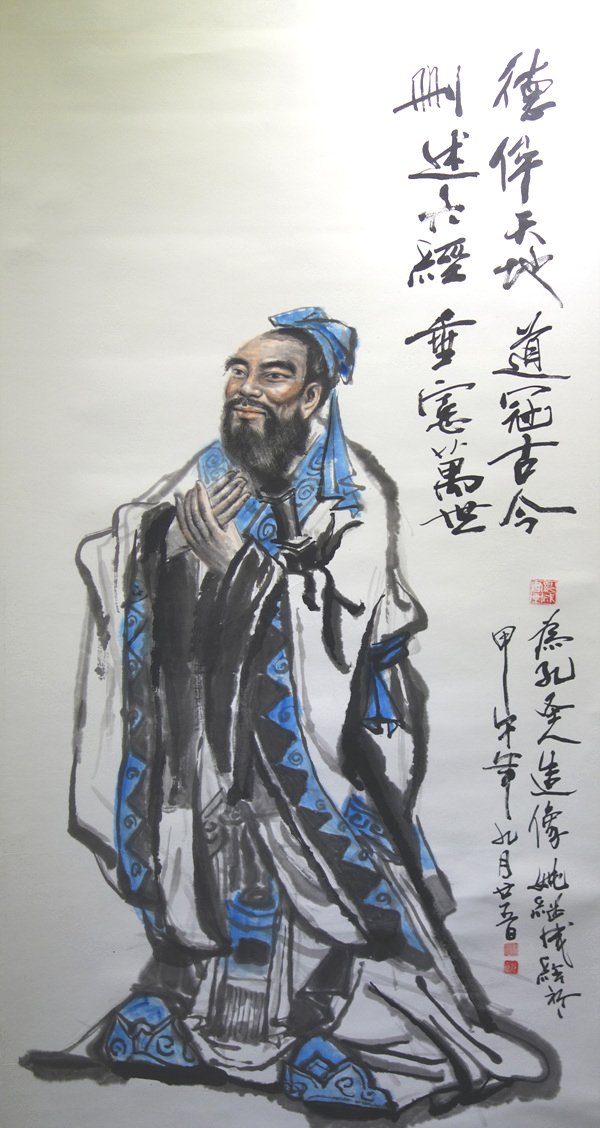 德侔天地 道冠古今
删述六經 垂憲萬世
為孔聖人造像 姚繼成繪於
甲午年九月廿五日